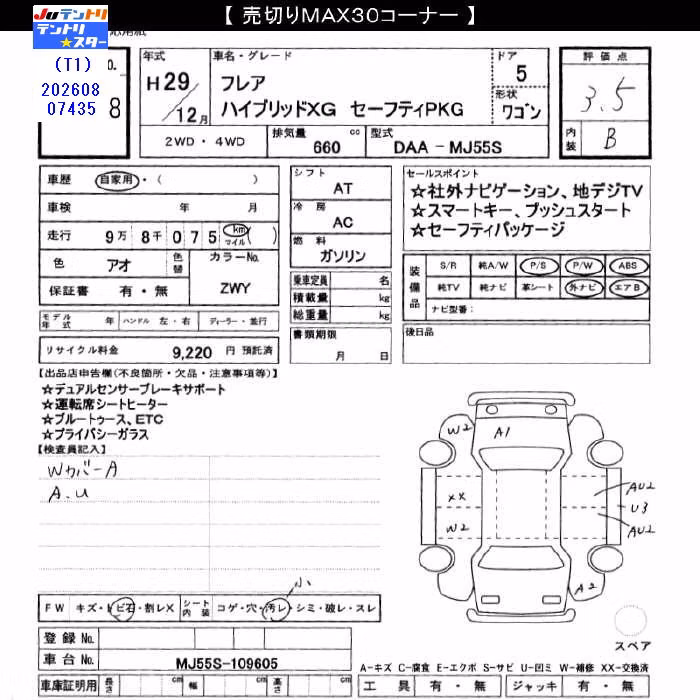 【 売切りMAX30コーナー 】
JUテントリ
テントリ
★スター
応用紙
(T1)
No.
202608
07435
8
年式
H29
12月
車名・グレード
フレア
ハイブリッドXG セーフティPKG
ドア
5
形状
ワゴン
評価点
3.5
内装
B
2WD・4WD
排気量
660
cc
型式
DAA - MJ55S
車歴
自家用・( )
車検
年 月
走行
9万 8千 0 7 5
km
マイル
( )
色
アオ
色替
カラーNo.
ZWY
保証書
有・無
シフト
AT
冷房
AC
燃料
ガソリン
乗車定員
名
積載量
kg
総重量
kg
書類期限
月 日
セールスポイント
☆社外ナビゲーション、地デジTV
☆スマートキー、プッシュスタート
☆セーフティパッケージ
装備品
S/R 純A/W P/S P/W ABS
純TV 純ナビ 革シート 外ナビ エアB
ナビ型番:
後日品
モデル年式 年
ハンドル 左・右
ディーラー・並行
リサイクル料金 9,220 円 預託済
【出品店申告欄(不良箇所・欠品・注意事項等)】
☆デュアルセンサーブレーキサポート
☆運転席シートヒーター
☆ブルートゥース、ETC
☆プライバシーガラス
【検査員記入】
WカバーA
A.U
W2
A1
XX
AU2
U3
W2
AU2
A2
小
FW キズ・トビ石・割レX
シート内装 コゲ・穴・汚レ・シミ・破レ・スレ
登録 No.
車台 No. MJ55S-109605
スペア
A-キズ C-腐食 E-エクボ S-サビ U-凹ミ W-補修 XX-交換済
車庫証明用
長さ cm
幅 cm
高さ cm
工具 有・無
ジャッキ 有・無